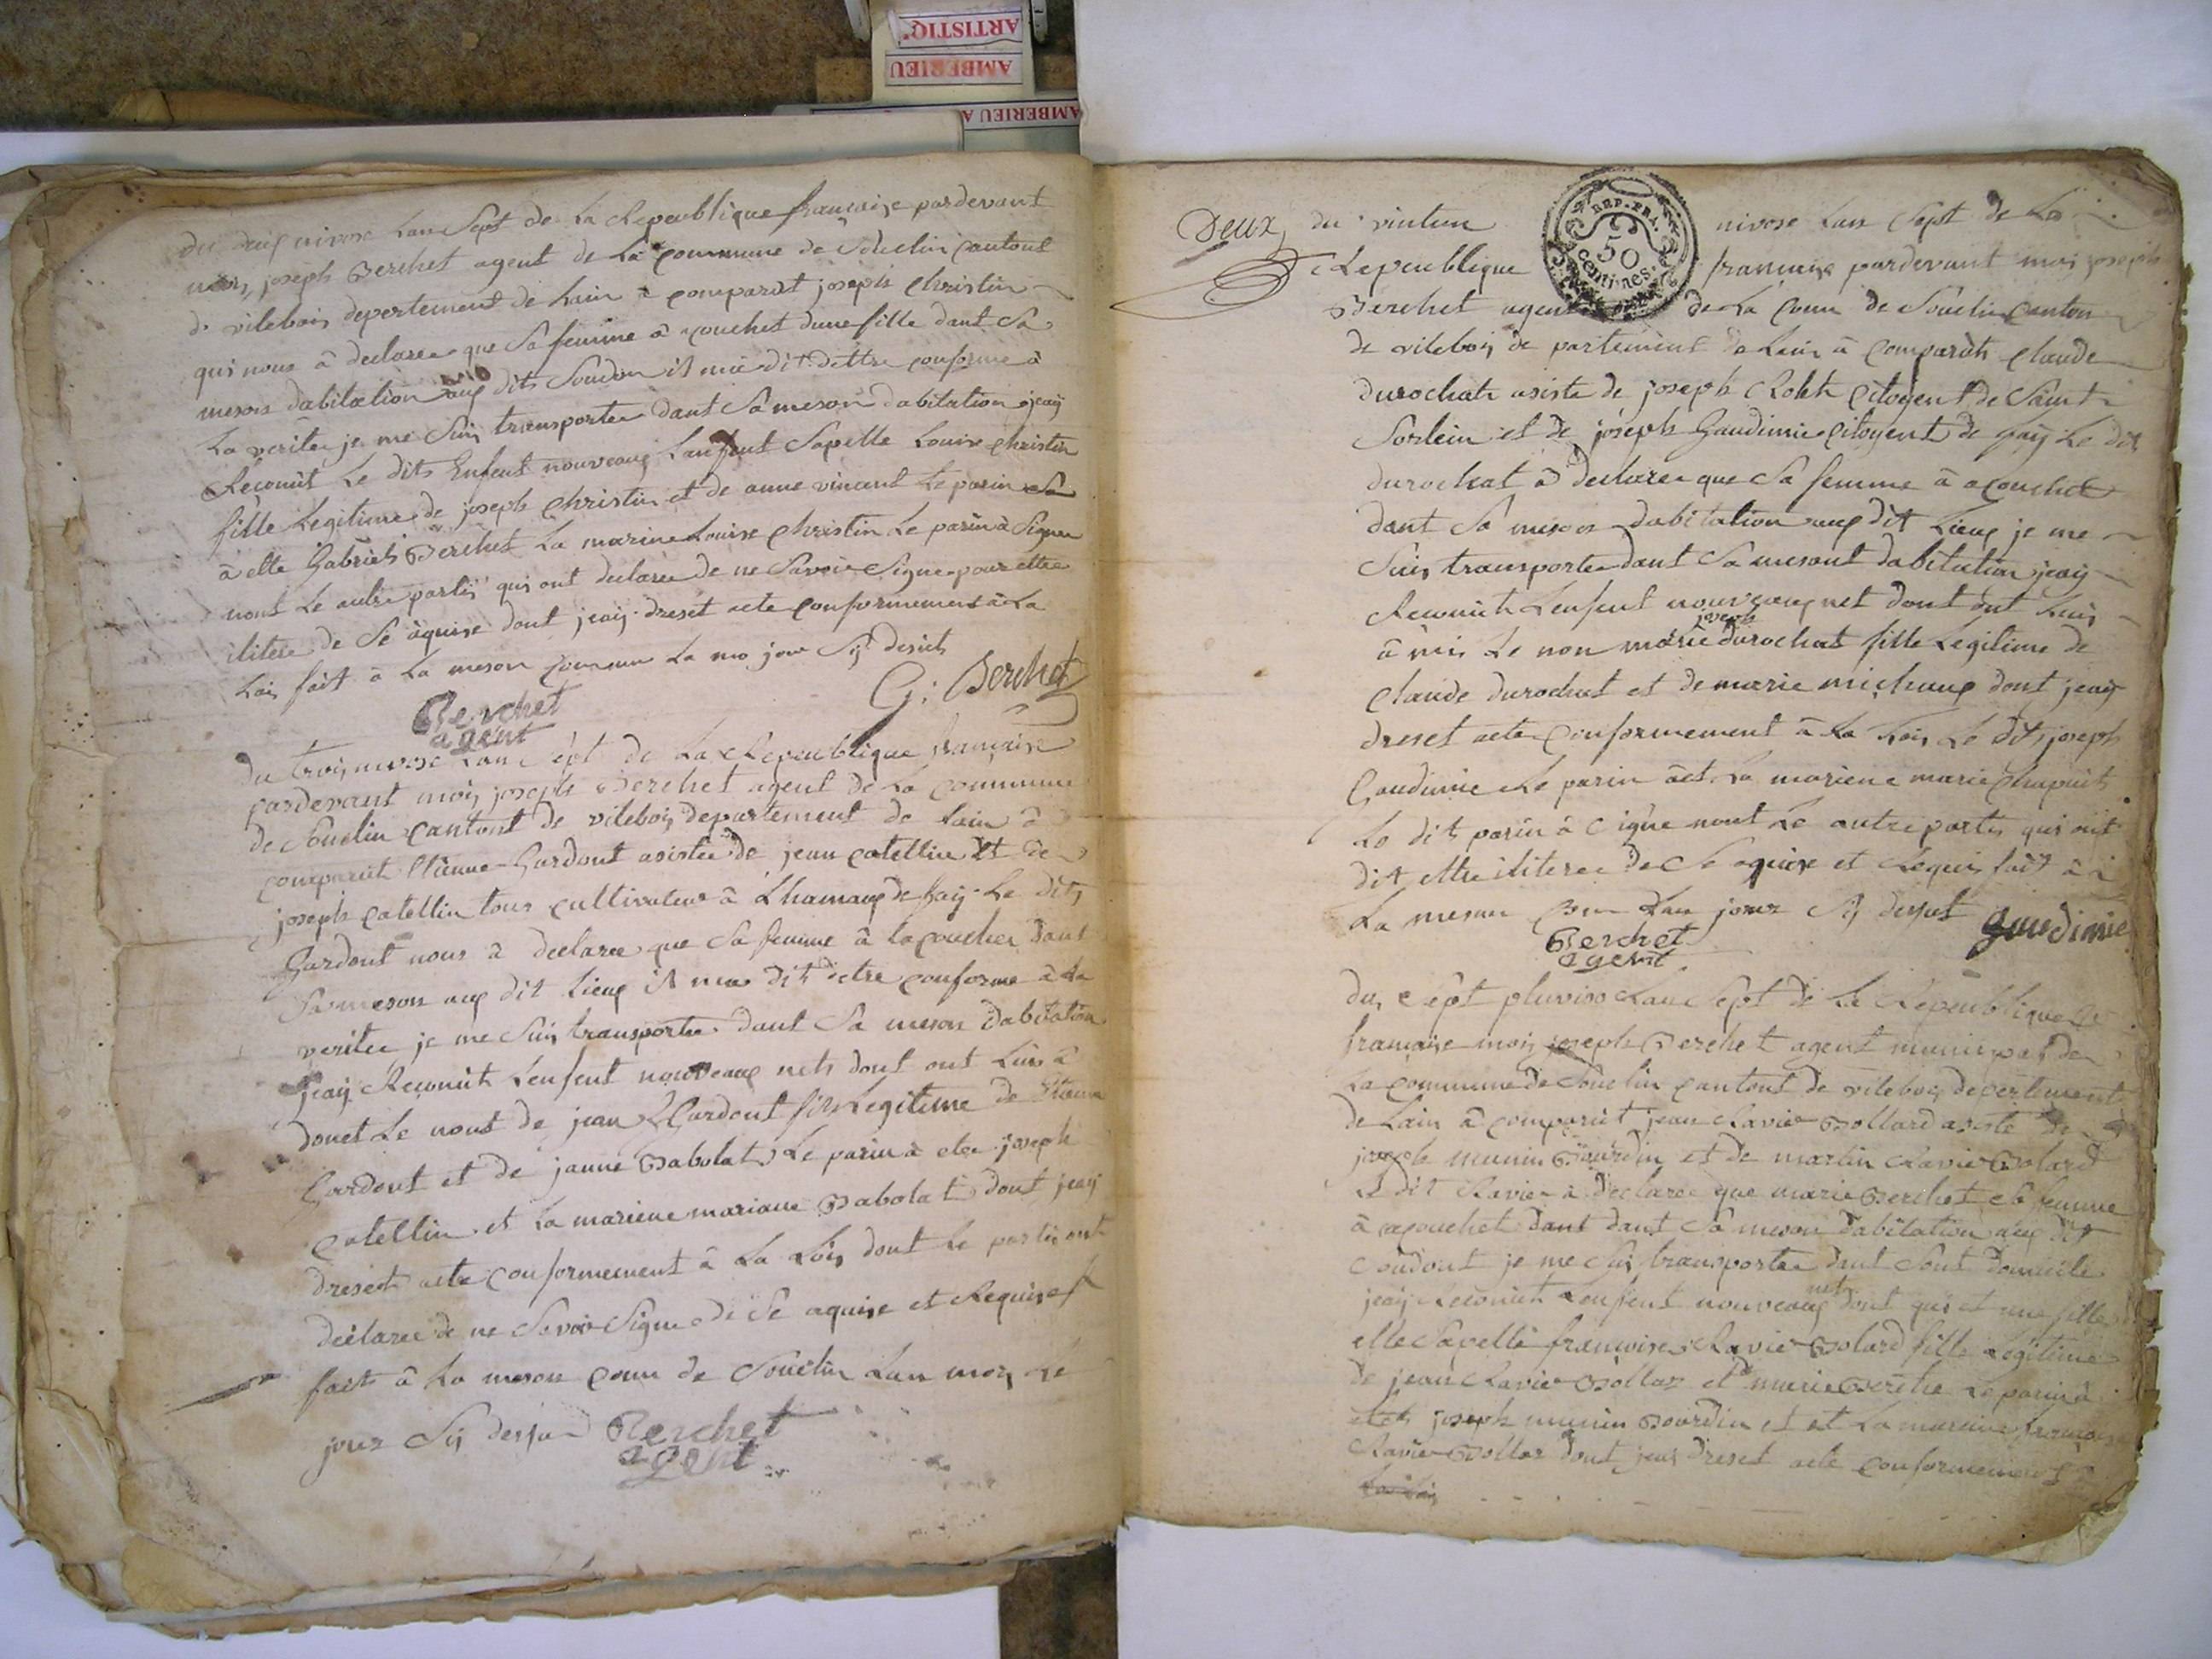 ARTISTIQ'
AMBERIEU
AMBERIEU A
du deux nivose Lan Sept de La Republique francaise pardevant
mois joseph Berchet agent de La commune de Souclin cantont
de vilebois depertement de Lain à comparût joseph christin
qui nous à declaree que Sa femme à acouchet dune fille dant Sa
meson dabitation aux dits Soudon il mà dit dettre conforme à
La veritee je me Suis transportee dant Sa meson dabitation jeaij
Reconût Le dits Enfent nouveaux Lenfent Sapelle Louise christin
fille Legitime de joseph christin et de anne vincent Le parin
à ette Gabriel Berchet La marine Louise christin Le parin à Signer
nont Le autre partis qui ont declaree de ne Savoir Signe pour ettre
iliteree de Se aquise dont jeaij dreset acte conformement à La
Lois fait à La meson commun La mo jour Sij desus
Berchet G: Berchet
agent
du trois nivose Lan Sept de La Republique francaise
pardevant mois joseph Berchet agent de La commune
de Souclin cantont de vilebois departement de Lain à
comparût Etienne Gardont asistee de jean catellin et de
joseph catellin tous cultivateur à Lhamaux de faij Le dits
Gardont nous à declaree que Sa femme à lacouchet dant
Sa meson aux dit Lieux il mà dit dettre conforme à La
veritee je me Suis transportee dant Sa meson dabitation
jeaij Reconût Lenfent nouveaux nets dont ont Luis à
donet Le nont de jean Gardont fils Legitime de Etienne
Gardont et de janne Babolat Le parin à etee joseph
catellin et La mariene mariane Babolat dont jeaij
dreset acte conformement à La Lois dont Le partis ont
declaree de ne Savoir Signe de Se aquise et Requise
fait à La meson comm de Souclin Lan mois Le
jour Sij desu Berchet
agent
Deux du vintun nivose Lan Sept de La
REP. FRA.
50
centimes.
Republique francaise pardevant mois joseph
Berchet agent de La comm de Souclin canton
de vilebois de partement de Lain à comparût claude
durochat asiste de joseph Citoyent de Saint
Sorlein et de joseph Gaudimie Citoyent de faij Le dit
durochat à declaree que Sa femme à acouchet
dant Sa meson dabitation aux dit Lieux je me
Suis transportee dant Sa mesont dabitation jeaij
Reconût Lenfent nouveaux net dont ont Luis
joseph
à mis Le non marie durochat fille Legitime de
claude durochat et de marie michaux dont jeaij
dreset acte conformement à La Lois Le dits joseph
Gaudimie Le parin àet La mariene marie chapuits
Le dit parin à Signe nont Le autre partis qui ont
dit ettre iliteree de Se aquise et Requis fait à
La meson com Lan jour Sij desut Gaudimie
Berchet
agent
du Sept pluviose Lan Sept de La Republique
francaise mois joseph Berchet agent municipal de
La commune de Souclin cantont de vilebois depertement
de Lain à comparût jean Ravier Bollard asiste de
joseph munin Bourdin et de martin Ravier Bolard
Le dit Ravier à declaree que marie Berchet Sa femme
à acouchet dant dant Sa meson dabitation aux dit
Soudont je me Suis transportee dant Sont domicile
net
jeaij Reconût Lenfent nouveaux dont qui et une fille
elle Sapelle francoise Ravier Bolard fille Legitime
de jean Ravier Bollar et marie Berche Le parin à
etee joseph munin Bourdin et et La mareine francoise
Ravier Bollar dont jeaij dreset acte conformement
La Lois